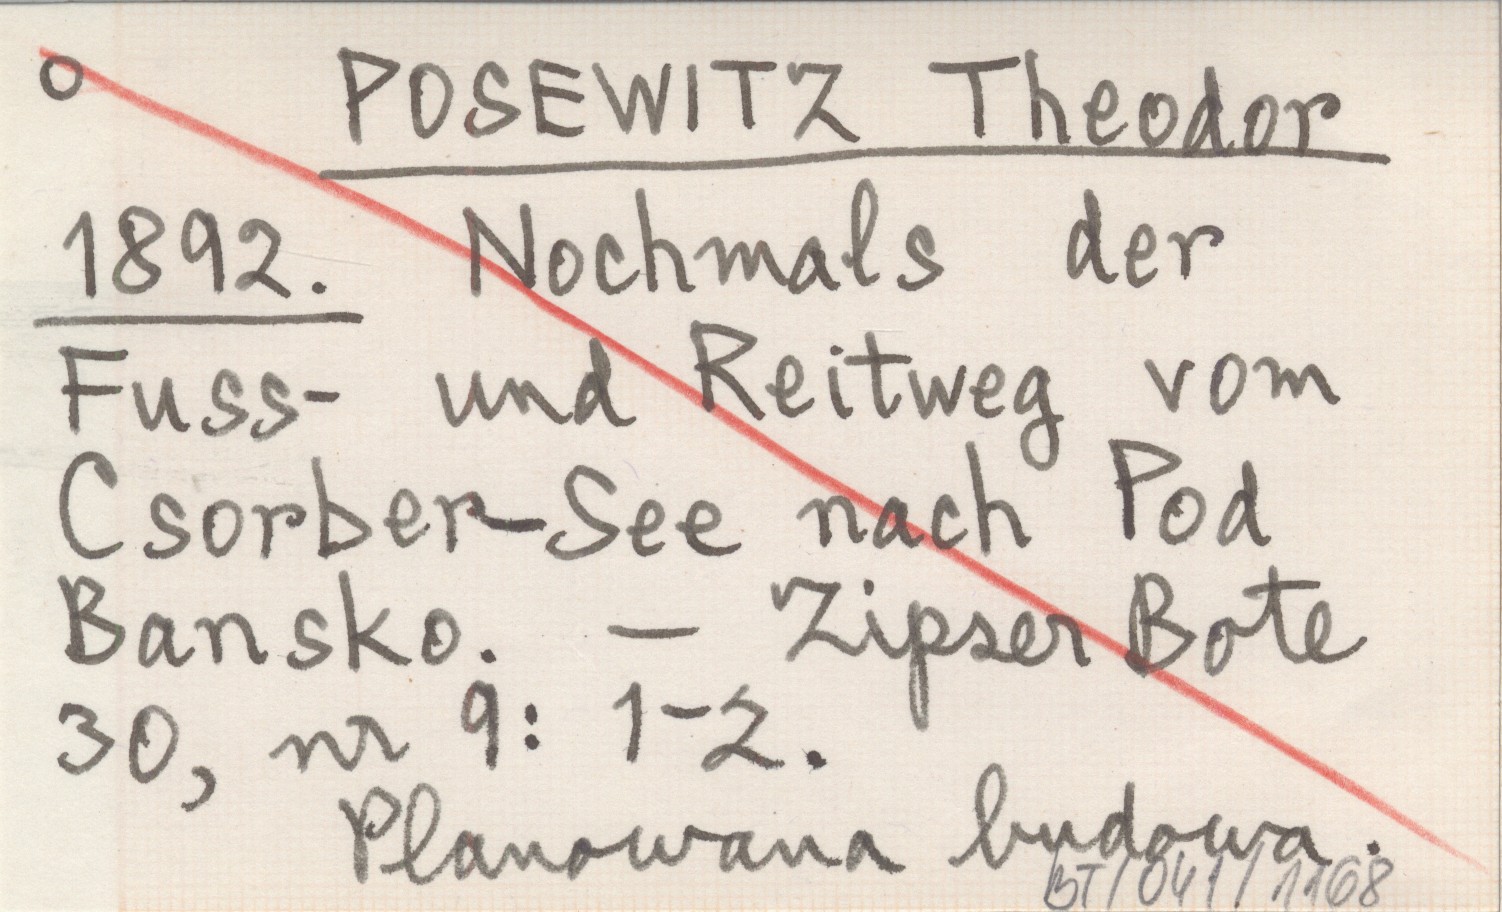 o POSEWITZ Theodor
1892. Nochmals der
Fuss- und Reitweg vom
Csorber-See nach Pod
Bansko. — Zipser Bote
30, nr 9: 1-2.
Planowana budowa.
BT/041/1168